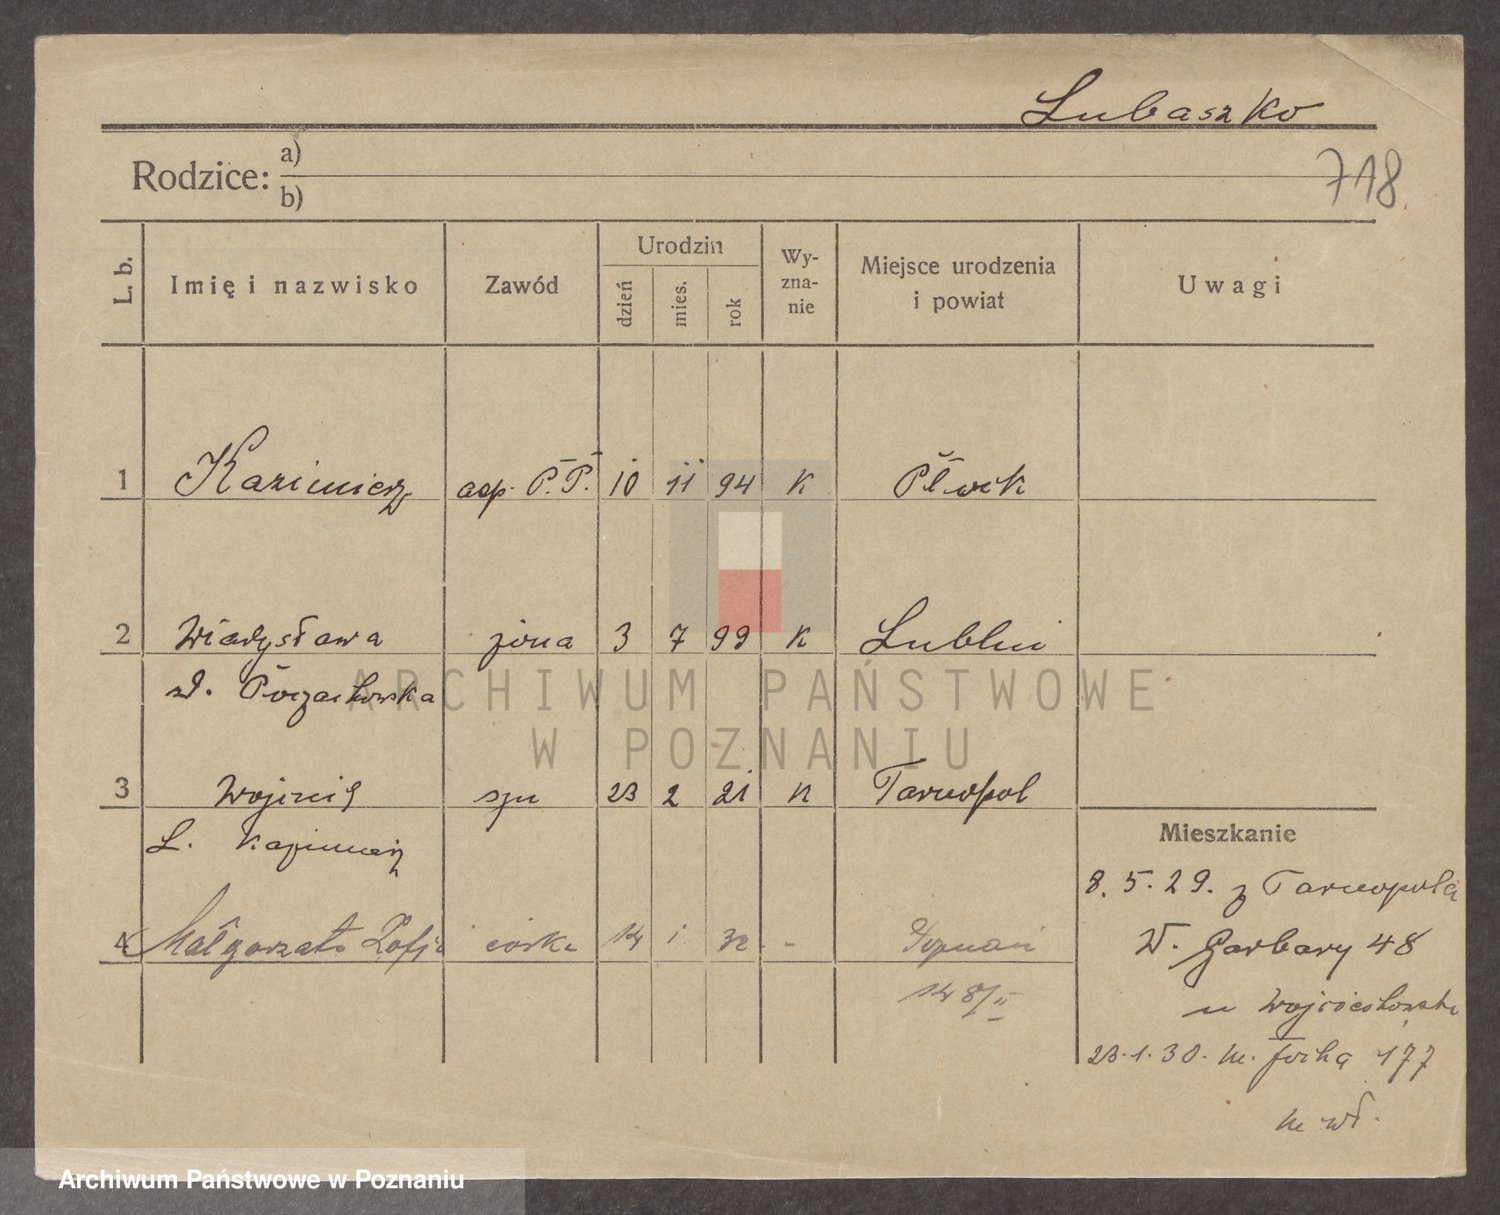 Lubaszko
Rodzice: a)
b)
718
L. b.
Imię i nazwisko
Zawód
Urodzin
dzień
mies.
rok
Wy-
zna-
nie
Miejsce urodzenia
i powiat
Uwagi
1 Kazimierz asp. P.P. 10 11 94 K
2 Władysława żona 3 7 99 K Lublin
zd.
3 syn 23 2 21 K Tarnopol
L. Kazimierz
4 Małgorzata Zofja córka 14 1 32 - Poznań
14 8/II
Mieszkanie
8. 5. 29. z Tarnopola
W. Garbary 48
u
23.1.30. M. Focha 177
ARCHIWUM PAŃSTWOWE
W POZNANIU
Archiwum Państwowe w Poznaniu